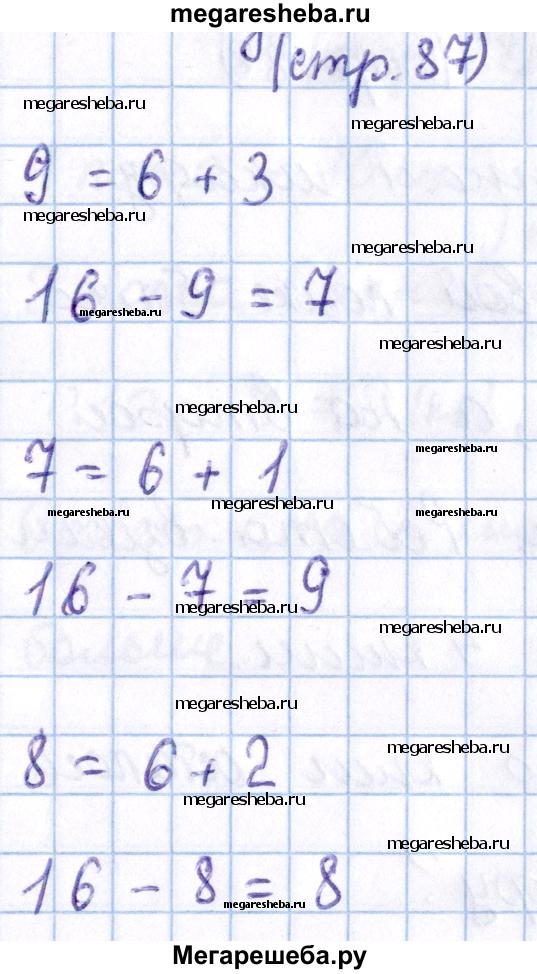 megaresheba.ru
(стр. 87)
megaresheba.ru
megaresheba.ru
9 = 6 + 3
megaresheba.ru
megaresheba.ru
16 - 9 = 7
megaresheba.ru
megaresheba.ru
megaresheba.ru
7 = 6 + 1
megaresheba.ru
megaresheba.ru
megaresheba.ru
megaresheba.ru
16 - 7 = 9
megaresheba.ru
megaresheba.ru
megaresheba.ru
megaresheba.ru
8 = 6 + 2
megaresheba.ru
megaresheba.ru
16 - 8 = 8
megaresheba.ru
Мегарешеба.ру